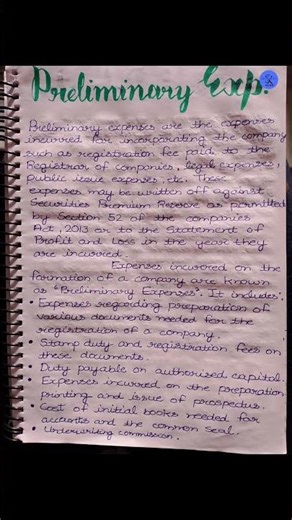 Preliminary Exp.
Preliminary expenses are the expenses
incurred for incorporating the company
such as registration fee paid to the
Registrar of companies, legal expenses,
public issue expenses etc. These
expenses may be written off against
Securities Premium Reserve as permitted
by Section 52 of the companies
Act, 2013 or to the Statement of
Profit and Loss in the year they
are incurred.
Expenses incurred on the
formation of a company are known
as "Preliminary Expenses". It includes:
• Expenses regarding preparation of
various documents needed for the
registration of a company.
• Stamp duty and registration fees on
these documents.
• Duty payable on authorised capital.
• Expenses incurred on the preparation
printing and issue of prospectus.
• Cost of initial books needed for
accounts and the common seal.
• Underwriting commission.